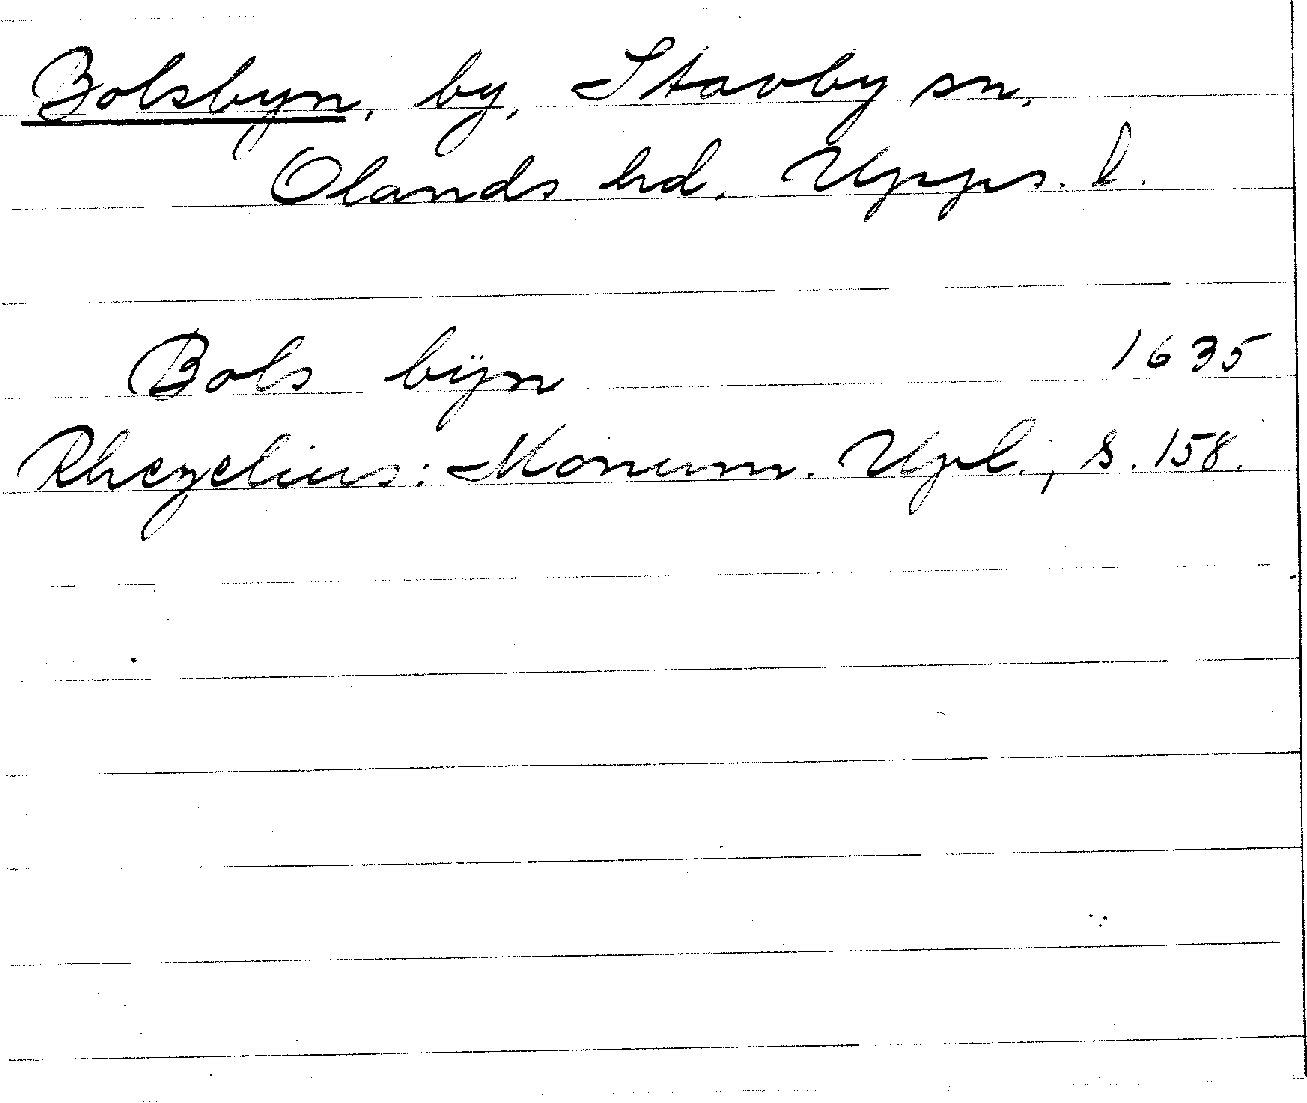 Bolsbyn, by, Stavby sn,
Olands hd, Upps. l.
Bols bÿn 1635
Rhezelius: Monum. Upl., s. 158.